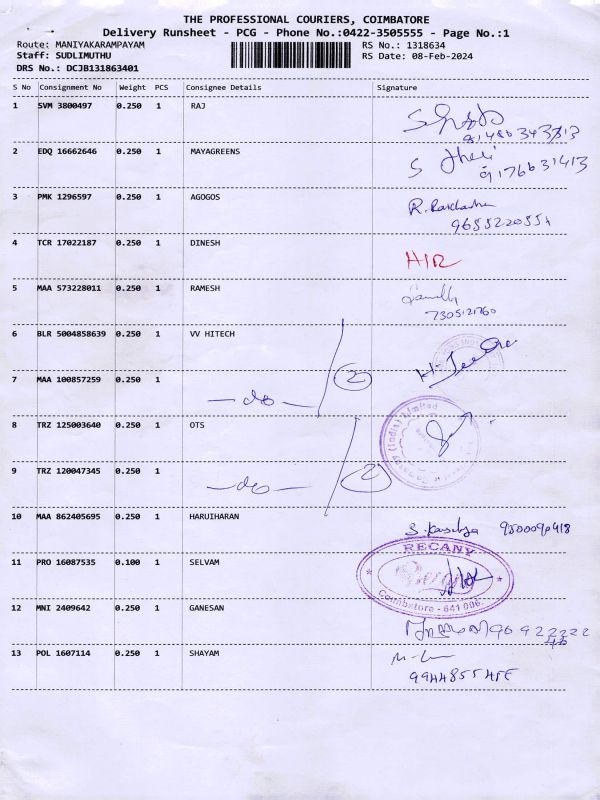 THE PROFESSIONAL COURIERS, COIMBATORE
Delivery Runsheet - PCG - Phone No.:0422-3505555 - Page No.:1
Route: MANIYAKARAMPAYAM RS No.: 1318634
Staff: SUDLIMUTHU RS Date: 08-Feb-2024
DRS No.: DCJB131863401
S No Consignment No Weight PCS Consignee Details Signature
1 SVM 3800497 0.250 1 RAJ
2 EDQ 16662646 0.250 1 MAYAGREENS
9176631413
3 PMK 1296597 0.250 1 AGOGOS
4 TCR 17022187 0.250 1 DINESH
5 MAA 573228011 0.250 1 RAMESH
7305121760
6 BLR 5004858639 0.250 1 VV HITECH
7 MAA 100857259 0.250 1 -do- 2
8 TRZ 125003640 0.250 1 OTS
9 TRZ 120047345 0.250 1 -do- 2
10 MAA 862405695 0.250 1 HARUIHARAN
11 PRO 16087535 0.100 1 SELVAM RECANY
Coimbatore - 641 006.
12 MNI 2409642 0.250 1 GANESAN
13 POL 1607114 0.250 1 SHAYAM